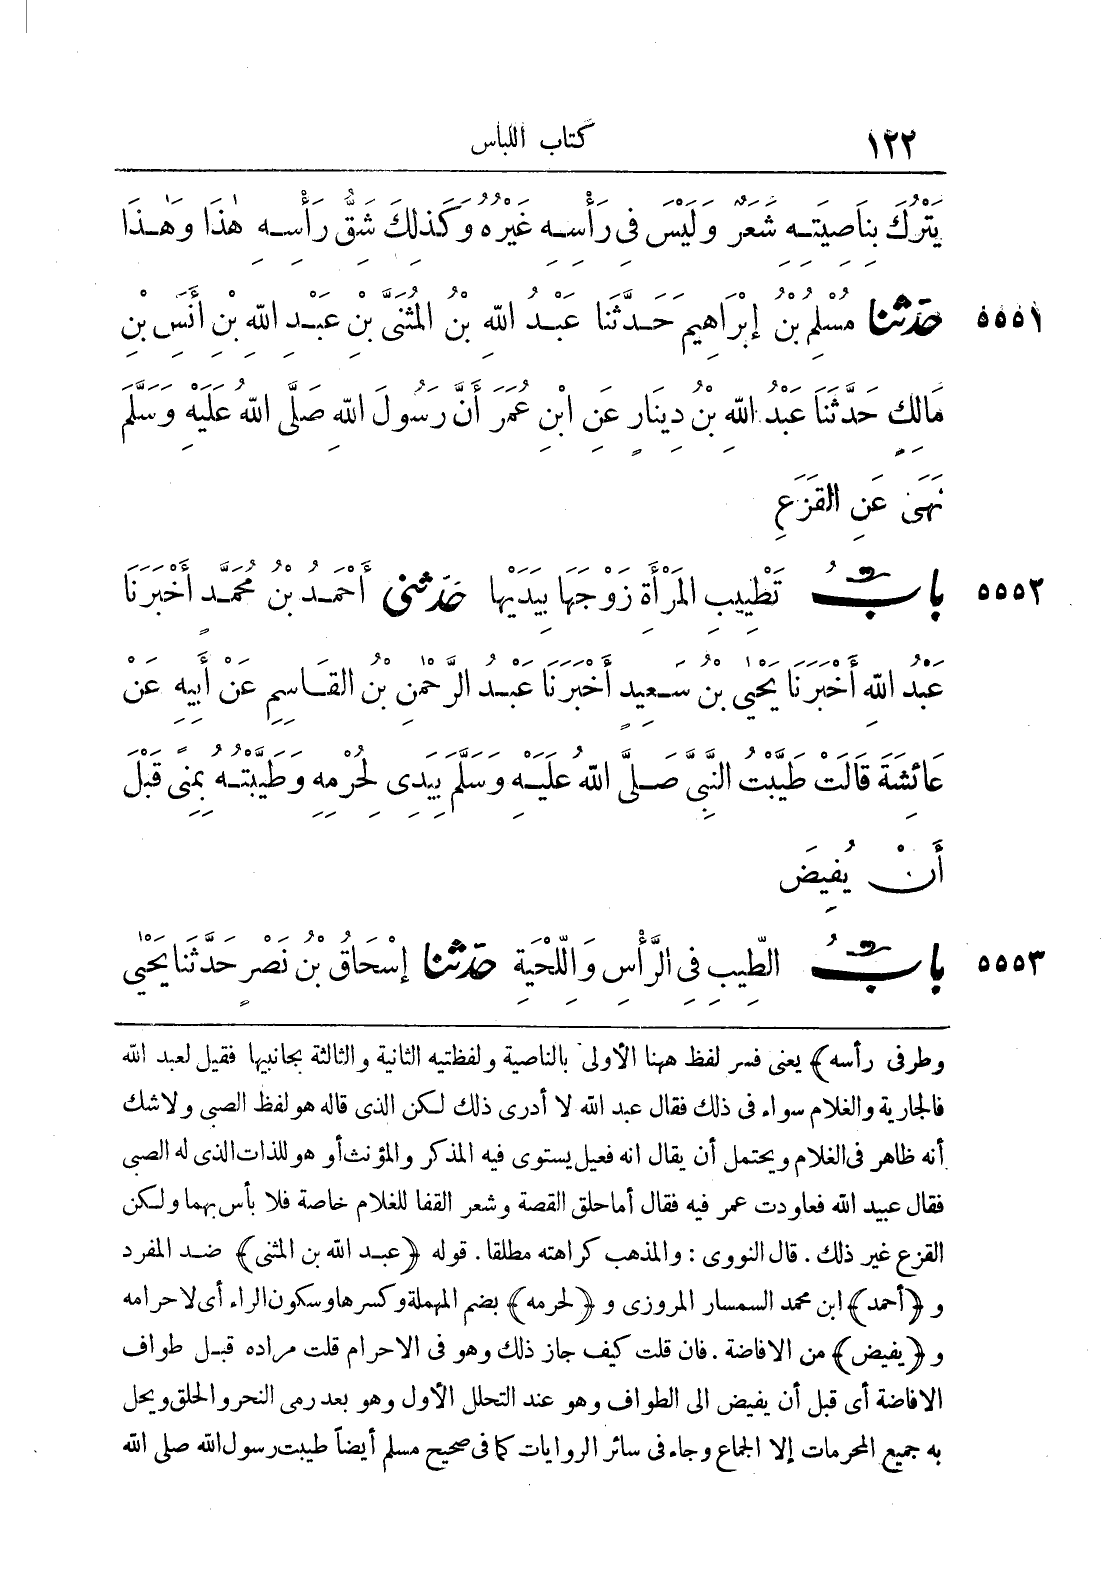 ١٢٢ كتاب اللباس
يَتْرُكَ بِنَاصِيَتِهِ شَعَرٌ وَلَيْسَ فِى رَأْسِهِ غَيْرُهُ وَكَذٰلِكَ شَقُّ رَأْسِهِ هٰذَا وَهٰذَا
٥٥٥١ حَدَّثَنَا مُسْلِمُ بْنُ إِبْرَاهِيمَ حَدَّثَنَا عَبْدُ اللهِ بْنُ المُثَنَّى بْنِ عَبْدِ اللهِ بْنِ أَنَسِ بْنِ
مَالِكٍ حَدَّثَنَا عَبْدُ اللهِ بْنُ دِينَارٍ عَنِ ابْنِ عُمَرَ أَنَّ رَسُولَ اللهِ صَلَّى اللهُ عَلَيْهِ وَسَلَّمَ
نَهَى عَنِ القَزَعِ
٥٥٥٢ بَابُ تَطْيِيبِ المَرْأَةِ زَوْجَهَا بِيَدَيْهَا حَدَّثَنِى أَحْمَدُ بْنُ مُحَمَّدٍ أَخْبَرَنَا
عَبْدُ اللهِ أَخْبَرَنَا يَحْيٰى بْنُ سَعِيدٍ أَخْبَرَنَا عَبْدُ الرَّحْمٰنِ بْنُ القَاسِمِ عَنْ أَبِيهِ عَنْ
عَائِشَةَ قَالَتْ طَيَّبْتُ النَّبِىَّ صَلَّى اللهُ عَلَيْهِ وَسَلَّمَ بِيَدِى لِحُرْمِهِ وَطَيَّبْتُهُ بِمِنًى قَبْلَ
أَنْ يُفِيضَ
٥٥٥٣ بَابُ الطِّيبِ فِى الرَّأْسِ وَاللِّحْيَةِ حَدَّثَنَا إِسْحَاقُ بْنُ نَصْرٍ حَدَّثَنَا يَحْيٰى
وطرفى رأسه﴾ يعنى فسر لفظ ههنا الأولى بالناصية ولفظتيه الثانية والثالثة بجانبيها فقيل لعبد الله
فالجارية والغلام سواء فى ذلك فقال عبد الله لا أدرى ذلك لكن الذى قاله هو لفظ الصبى ولا شك
أنه ظاهر فى الغلام ويحتمل أن يقال انه فعيل يستوى فيه المذكر والمؤنث أو هو للذات الذى له الصبى
فقال عبيد الله فعاودت عمر فيه فقال أما حلق القصة وشعر القفا للغلام خاصة فلا بأس بهما ولكن
القزع غير ذلك . قال النووى : والمذهب كراهته مطلقا . قوله ﴿عبد الله بن المثنى﴾ ضد المفرد
و﴿أحمد﴾ ابن محمد السمسار المروزى و﴿لحرمه﴾ بضم المهملة وكسرها وسكون الراء أى لاحرامه
و﴿يفيض﴾ من الافاضة . فان قلت كيف جاز ذلك وهو فى الاحرام قلت مراده قبل طواف
الافاضة أى قبل أن يفيض الى الطواف وهو عند التحلل الأول وهو بعد رمى النحر والحلق ويحل
به جميع المحرمات إلا الجماع وجاء فى سائر الروايات كما فى صحيح مسلم أيضاً طيبت رسول الله صلى الله